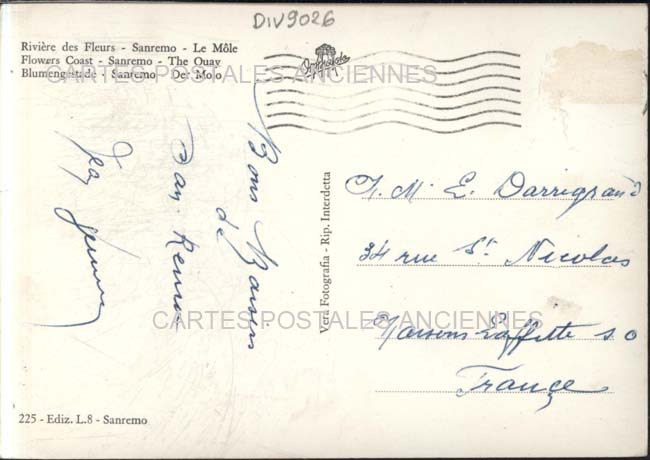 DIV9026
Rivière des Fleurs - Sanremo - Le Môle
Flowers Coast - Sanremo - The Quay
Blumengestade - Sanremo - Der Molo
CARTES POSTALES ANCIENNES
Bons Baisers
de
San Remo
Vera Fotografia - Rip. Interdetta
M. E. Darrigrand
34 rue St. Nicolas
Maisons Laffitte S.O
France
CARTES POSTALES ANCIENNES
225 - Ediz. L.8 - Sanremo